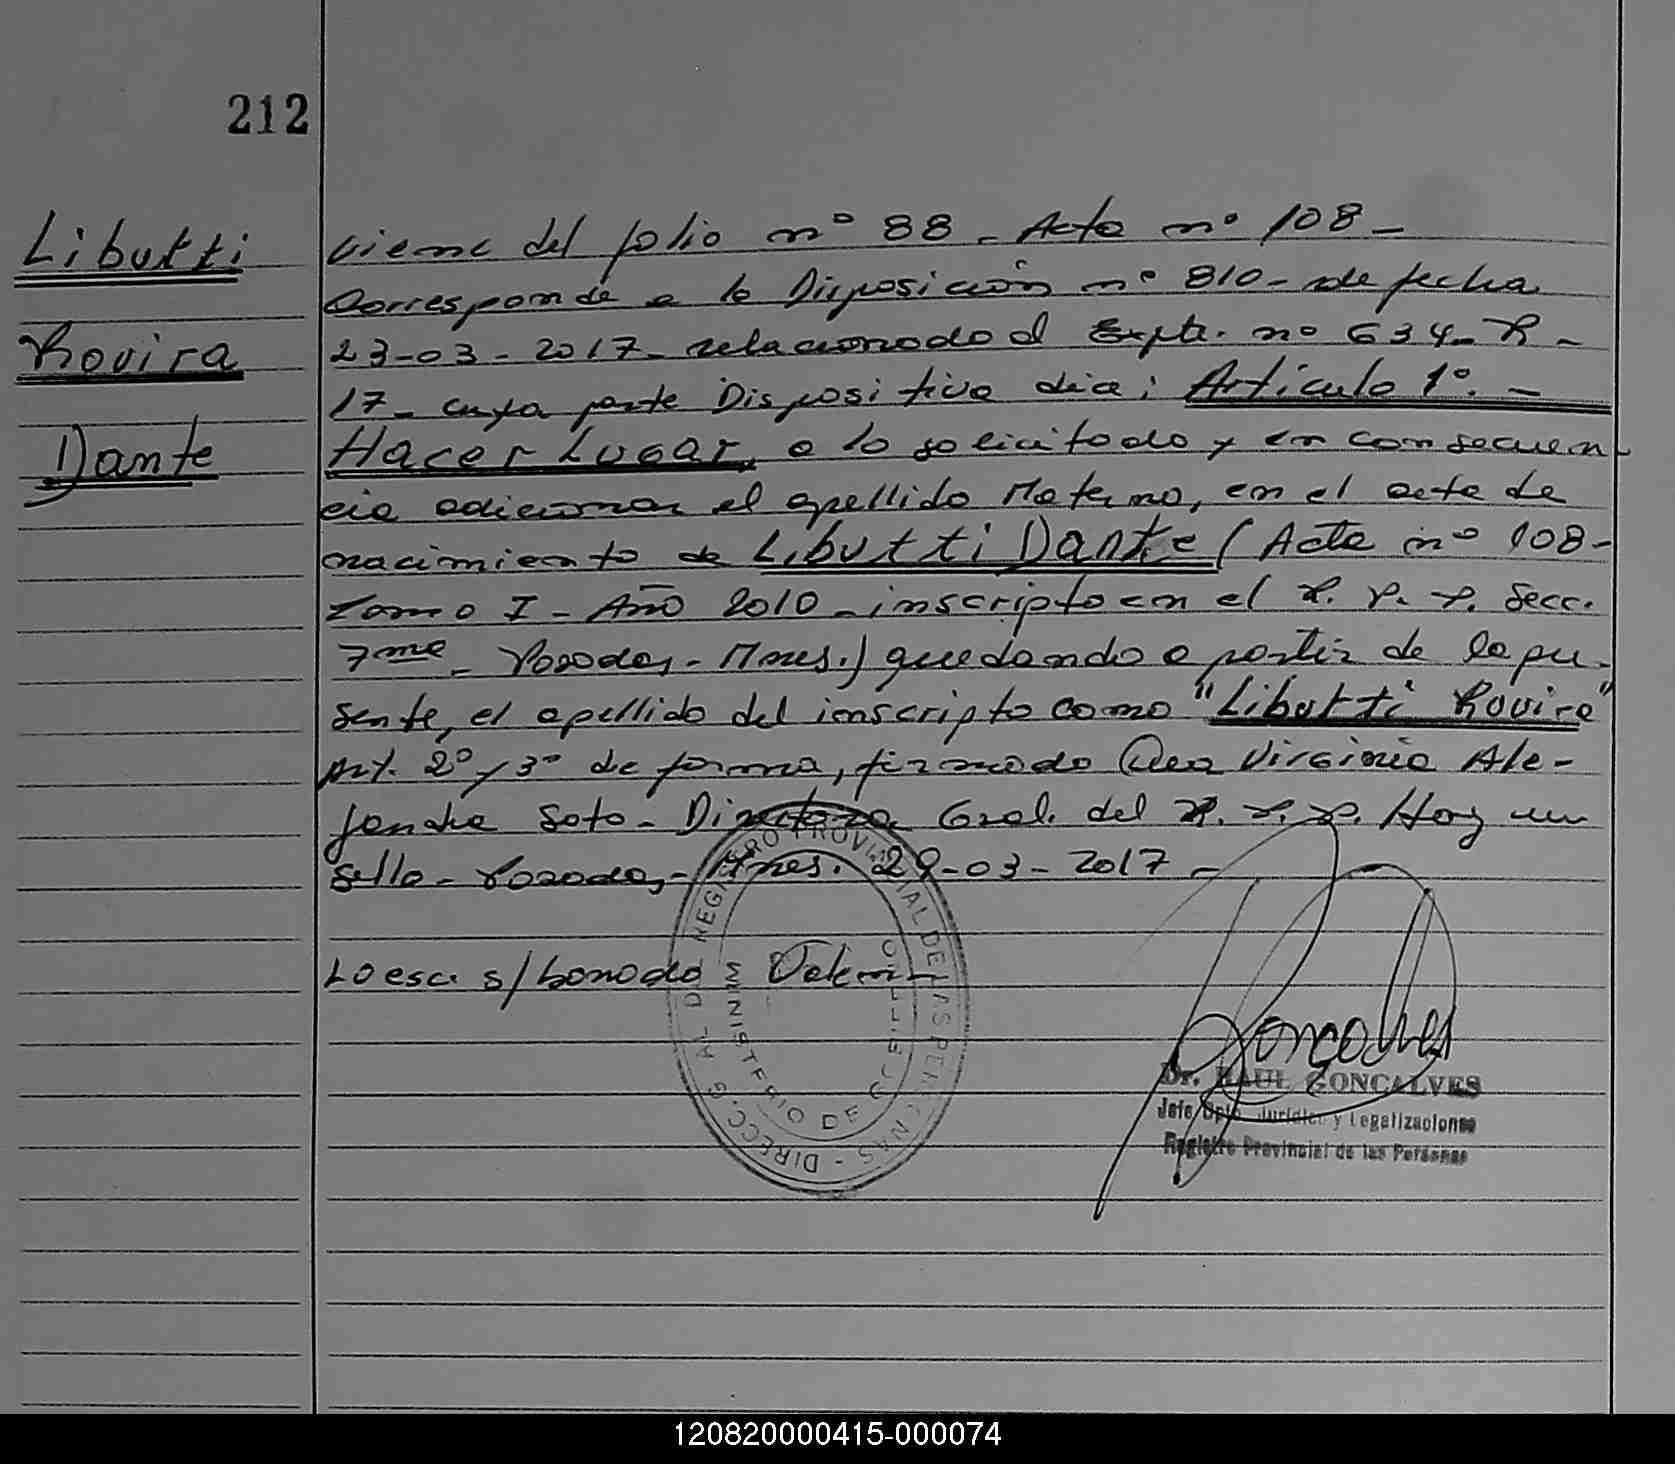 212
Libutti
Rovira
Dante
Viene del folio nº 88 - Acta nº 108 -
Corresponde a la Disposición nº 810 - de fecha
23-03-2017 - relacionado al Expte. nº 634 - R -
17 - cuya parte Dispositiva dice: Artículo 1º. -
Hacer Lugar, a lo solicitado y en consecuen-
cia adicionar el apellido Materno, en el acta de
nacimiento de Libutti Dante (Acta nº 108 -
Tomo I - Año 2010 - inscripto en el R. P. P. Secc.
7ma - Posadas, - Mnes.) quedando a partir de la pre-
sente, el apellido del inscripto como "Libutti Rovira"
Art. 2º y 3º de forma, firmado Virginia Ale-
jandra Soto - Directora Gral. del R. P. P. Hay un
sello - Posadas, - Mnes. 29-03-2017 -
Lo esc. s/ borrado Vale
DIRECC. G. AL DEL REGISTRO PROVINCIAL DE LAS PERSONAS -
MINISTERIO DE GOBIERNO
Goncalves
Dr. RAUL GONCALVES
Jefe Dpto. Jurídico y Legalizaciones
Registro Provincial de las Personas
120820000415-000074